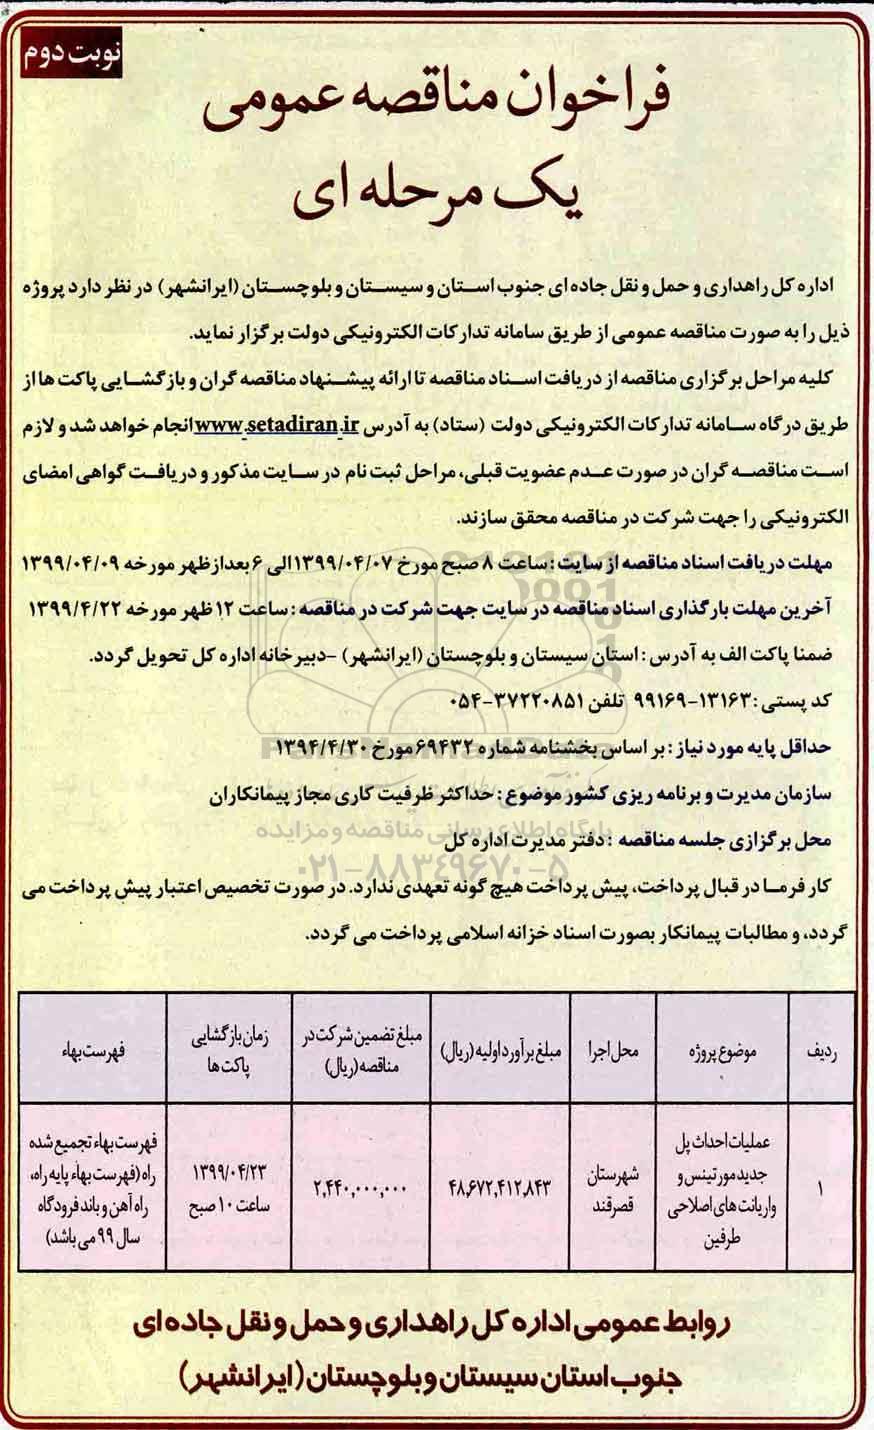 نوبت دوم
فراخوان مناقصه عمومی
یک مرحله ای
اداره کل راهداری و حمل و نقل جاده ای جنوب استان و سیستان و بلوچستان (ایرانشهر) در نظر دارد پروژه
ذیل را به صورت مناقصه عمومی از طریق سامانه تدارکات الکترونیکی دولت برگزار نماید.
کلیه مراحل برگزاری مناقصه از دریافت اسناد مناقصه تا ارائه پیشنهاد مناقصه گران و بازگشایی پاکت ها از
طریق درگاه سامانه تدارکات الکترونیکی دولت (ستاد) به آدرس www.setadiran.ir انجام خواهد شد و لازم
است مناقصه گران در صورت عدم عضویت قبلی، مراحل ثبت نام در سایت مذکور و دریافت گواهی امضای
الکترونیکی را جهت شرکت در مناقصه محقق سازند.
مهلت دریافت اسناد مناقصه از سایت: ساعت ۸ صبح مورخ ۱۳۹۹/۰۴/۰۷ الی ۶ بعدازظهر مورخه ۱۳۹۹/۰۴/۰۹
آخرین مهلت بارگذاری اسناد مناقصه در سایت جهت شرکت در مناقصه: ساعت ۱۲ ظهر مورخه ۱۳۹۹/۴/۲۲
ضمنا پاکت الف به آدرس: استان سیستان و بلوچستان (ایرانشهر) -دبیرخانه اداره کل تحویل گردد.
کد پستی: ۱۳۱۶۳-۹۹۱۶۹ تلفن ۳۷۲۲۰۸۵۱-۰۵۴
حداقل پایه مورد نیاز: بر اساس بخشنامه شماره ۶۹۴۳۲ مورخ ۱۳۹۴/۴/۳۰
سازمان مدیرت و برنامه ریزی کشور موضوع: حداکثر ظرفیت کاری مجاز پیمانکاران
پایگاه اطلاع رسانی مناقصه و مزایده
محل برگزازی جلسه مناقصه: دفتر مدیرت اداره کل
۰۲۱-۸۸۳۴۹۶۷۰-۵
کارفرما در قبال پرداخت، پیش پرداخت هیچ گونه تعهدی ندارد. در صورت تخصیص اعتبار پیش پرداخت می
گردد، و مطالبات پیمانکار بصورت اسناد خزانه اسلامی پرداخت می گردد.
ردیف
موضوع پروژه
محل اجرا
مبلغ برآورد اولیه (ریال)
مبلغ تضمین شرکت در
مناقصه (ریال)
زمان بازگشایی
پاکت ها
فهرست بهاء
۱
عملیات احداث پل
جدید مورتینس و
واریانت های اصلاحی
طرفین
شهرستان
قصرقند
۴۸,۶۷۲,۴۱۲,۸۴۳
۲,۴۴۰,۰۰۰,۰۰۰
۱۳۹۹/۰۴/۲۳
ساعت ۱۰ صبح
فهرست بهاء تجمیع شده
راه (فهرست بهاء پایه راه،
راه آهن و باند فرودگاه
سال ۹۹ می باشد)
روابط عمومی اداره کل راهداری و حمل و نقل جاده ای
جنوب استان سیستان و بلوچستان (ایرانشهر)